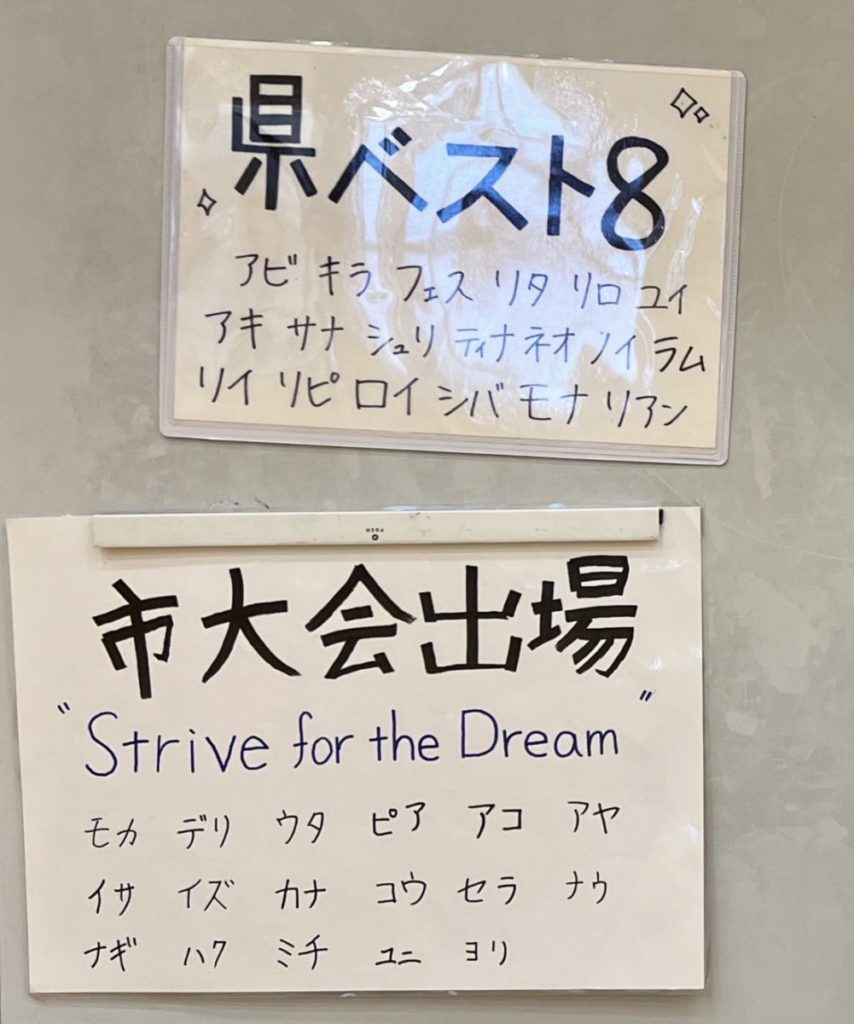 県ベスト8
アビ キラ フェス リタ リロ ユイ
アキ サナ シュリ ティナ ネオ ノイ ラム
リイ リピ ロイ シバ モナ リアン
市大会出場
"Strive for the Dream"
モカ デリ ウタ ピア アコ アヤ
イサ イズ カナ コウ セラ ナウ
ナギ ハク ミチ ユニ ヨリ